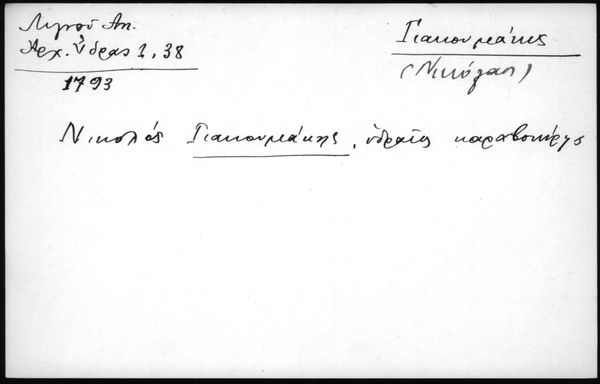 Λιγνοῦ Ἀπ.
Ἀρχ. Ὕδρας 1, 38
1793
Γιακουμάκης
(Νικόλαος)
Νικολὸς Γιακουμάκης, ὑδραῖος καραβοκύρης